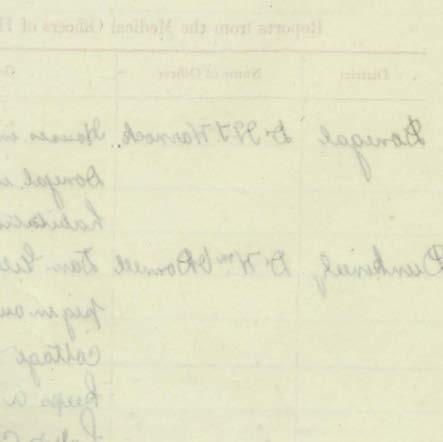 Reports from the Medical Officers of H
District Name of Officer
Donegal Dr H.T. Warnock Houses in
Donegal
habitatio
Dunkineely Dr Wm O'Donnell Dan
pig in ou
cottage
keeps a